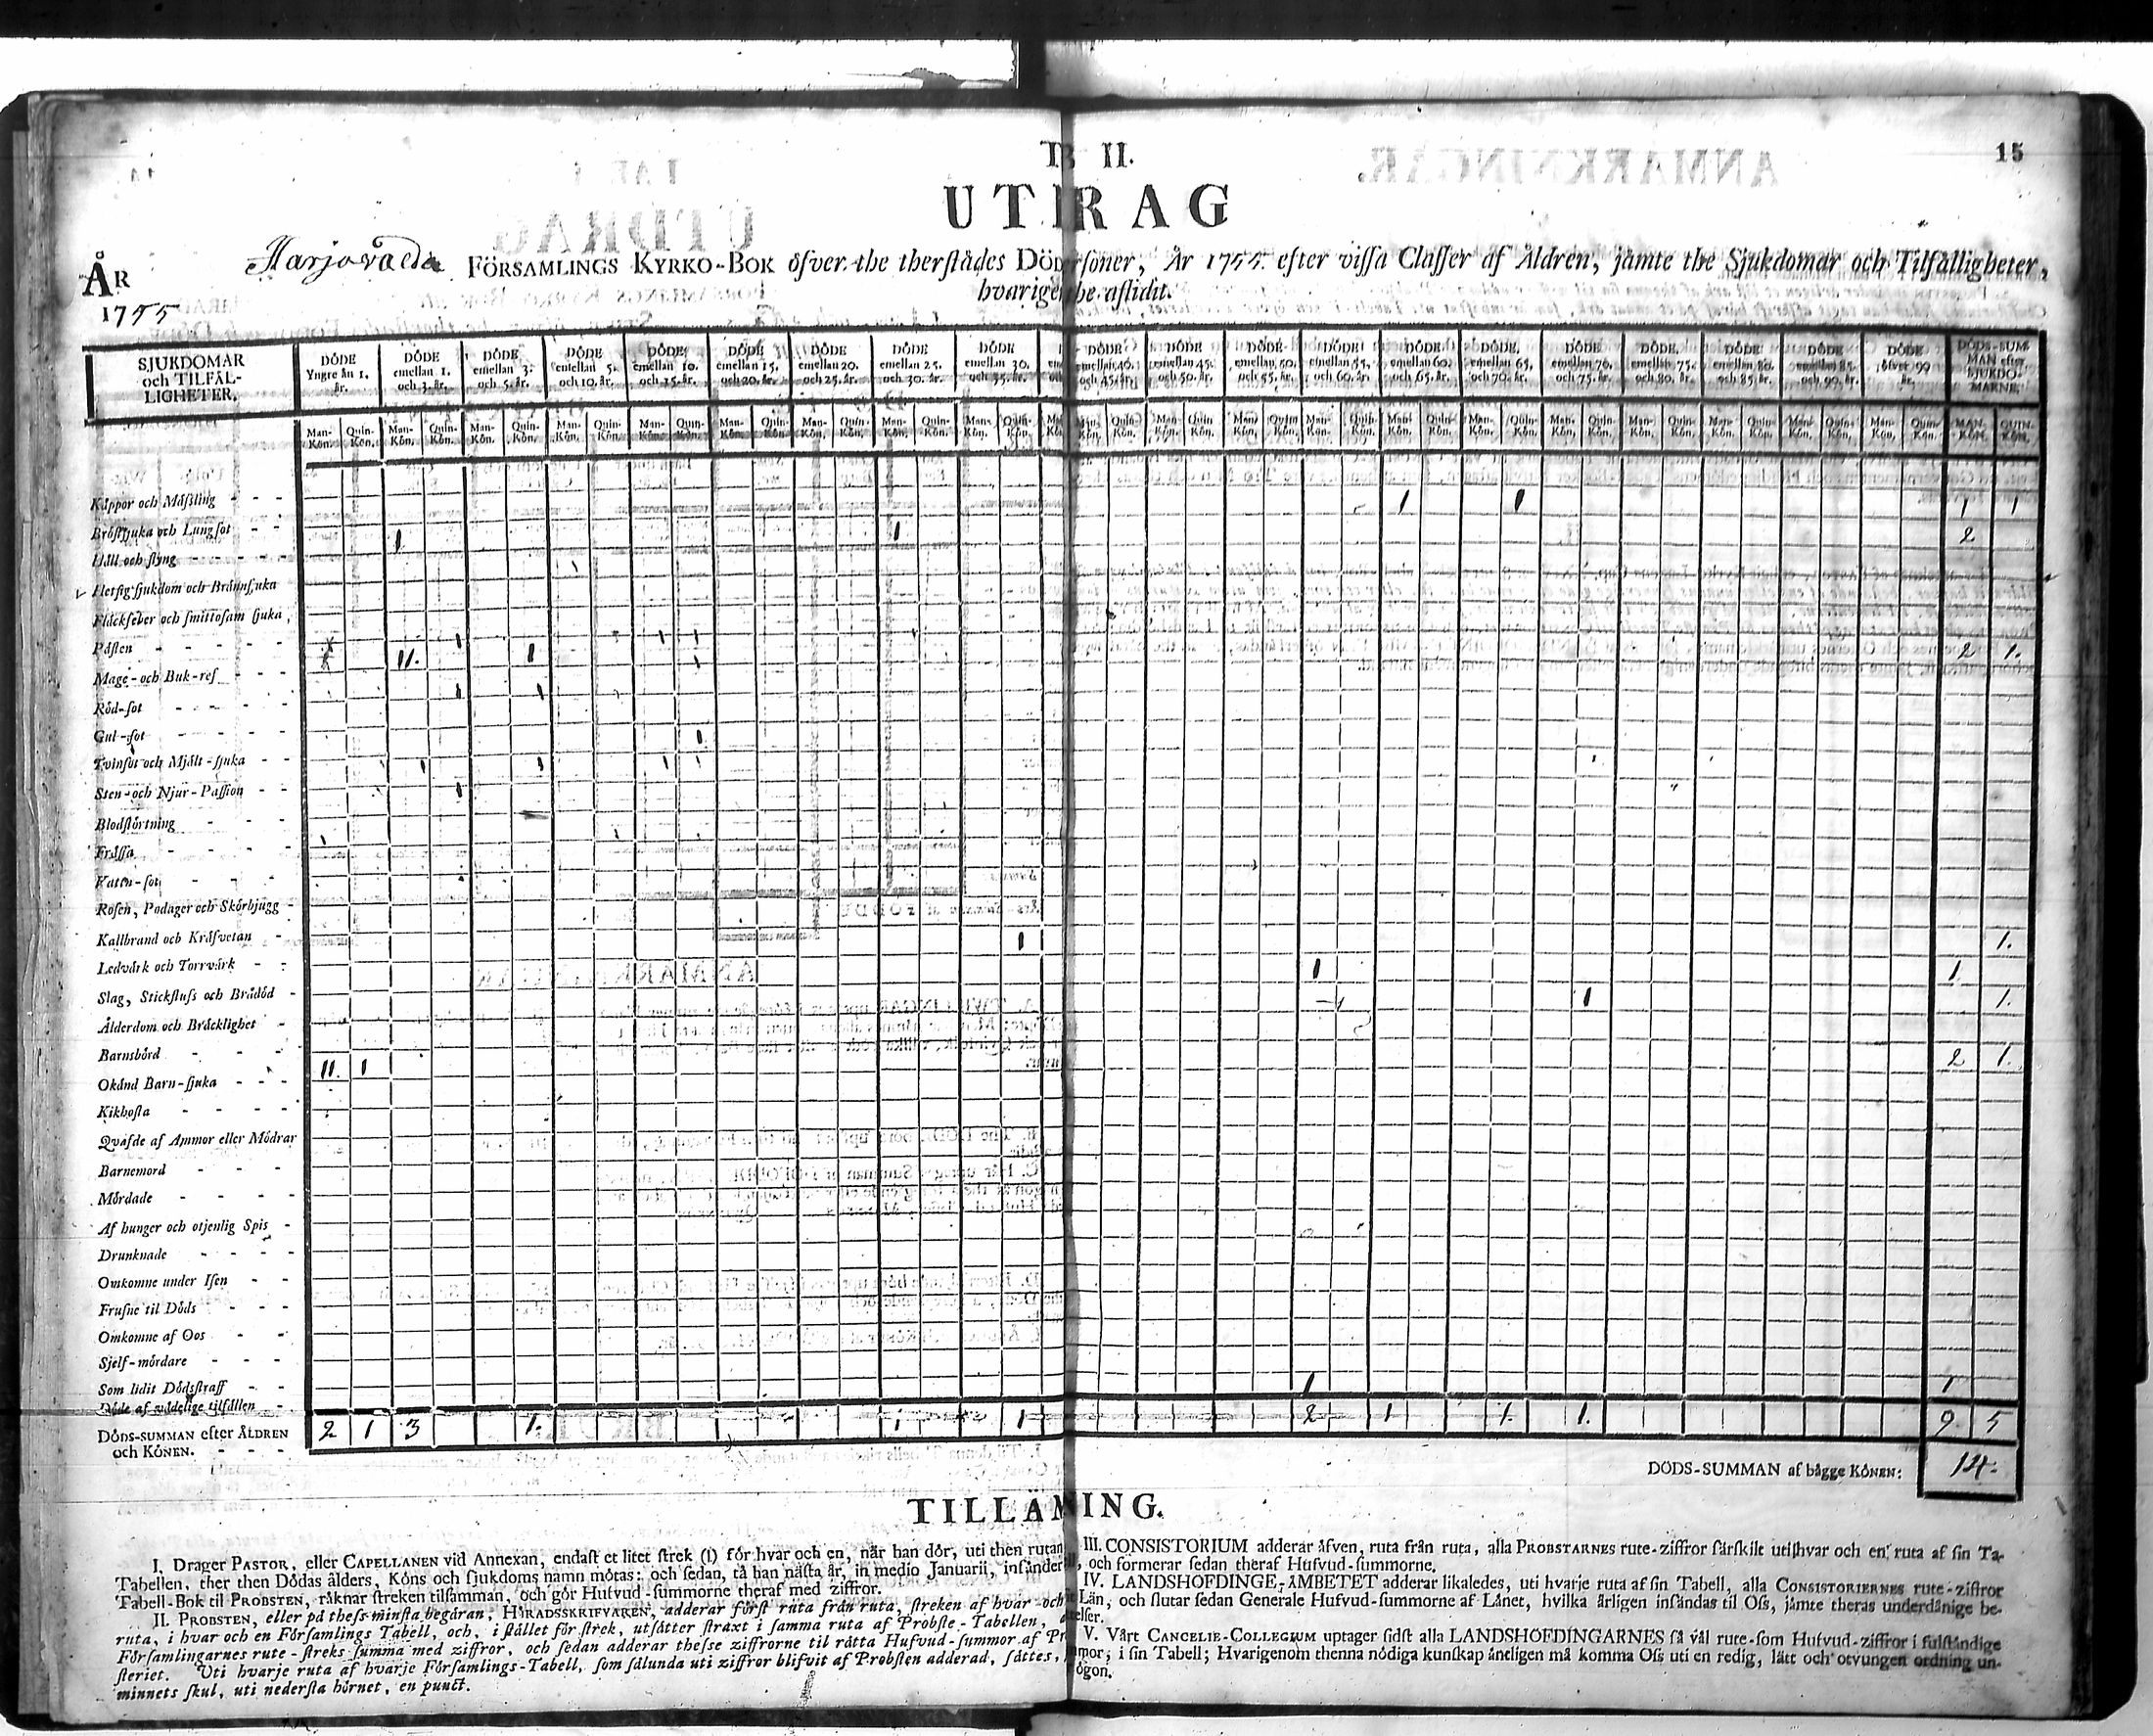 15
TB II.
UTRAG
ÅR
1755
Harjavalda FÖRSAMLINGS KYRKO-BOK öfver the therstädes DÖDersoner, År 1755. efter vissa Classer af Åldren, jämte the Sjukdomar och Tilfälligheter,
hvarigenhe aflidit.
SJUKDOMAR och TILFÄL-LIGHETER. DÖDE Yngre än 1. år. DÖDE emellan 1. och 3. år. DÖDE emellan 3. och 5. år. DÖDE emellan 5. och 10. år. DÖDE emellan 10. och 15. år. DÖDE emellan 15. och 20. år. DÖDE emellan 20. och 25. år. DÖDE emellan 25. och 30. år. DÖDE emellan 30. och 35. år. DÖDE emellan 40. och 45. år. DÖDE emellan 45. och 50. år. DÖDE emellan 50. och 55. år. DÖDE emellan 55. och 60. år. DÖDE emellan 60. och 65. år. DÖDE emellan 65. och 70. år. DÖDE emellan 70. och 75. år. DÖDE emellan 75. och 80. år. DÖDE emellan 80. och 85. år. DÖDE emellan 85. och 99. år. DÖDE öfver 99 år. DÖDS-SUMMAN efter SJUKDOMARNE.
Man-Kön. Quin-Kön. Man-Kön. Quin-Kön. Man-Kön. Quin-Kön. Man-Kön. Quin-Kön. Man-Kön. Quin-Kön. Man-Kön. Quin-Kön. Man-Kön. Quin-Kön. Man-Kön. Quin-Kön. Man-Kön. Quin-Kön. Man-Kön. Quin-Kön. Man-Kön. Quin-Kön. Man-Kön. Quin-Kön. Man-Kön. Quin-Kön. Man-Kön. Quin-Kön. Man-Kön. Quin-Kön. Man-Kön. Quin-Kön. Man-Kön. Quin-Kön. Man-Kön. Quin-Kön. Man-Kön. Quin-Kön. Man-Kön. Quin-Kön. MAN-KÖN. QUIN-KÖN.
Kåppor och Måßling - - - 1 1 1 1
Bröstsjuka och Lungsot - - 1 1 2
Håll och styng - - - - -
Hetsig sjukdom och Brännsjuka
Fläckfeber och smittosam sjuka,
Pästen - - - - - 11. 1 2 1.
Mage- och Buk-ref - - -
Röd-sot - - - -
Gul-sot - - - -
Tvinsot och Mjält-sjuka - -
Sten- och Njur-Passion - -
Blodstörtning - - -
Frässa - - - -
Vaten-sot - - -
Rosen, Podager och Skörbjugg -
Kallbrand och Kräfvetan - 1 1.
Ledvärk och Torrvärk - - 1 1
Slag, Stickfluss och Brådöd - 1 1.
Ålderdom och Bräcklighet -
Barnsbörd - - - 11. 1 2 1.
Okänd Barn-sjuka - - -
Kikhosta - - - -
Qväfde af Ammor eller Mödrar
Barnemord - - -
Mördade - - - -
Af hunger och otjenlig Spis -
Drunknade - - - -
Omkomne under Isen - -
Frusne til Döds - - -
Omkomne af Oos - -
Sjelf-mördare - - -
Som lidit Dödsstraff - - 1 1
Döde af vådelige tilfällen -
DÖDS-SUMMAN efter ÅLDREN och KÖNEN. - - - 2 1 3 1. 1 1 2 1 1. 1. 9. 5
DÖDS-SUMMAN af bägge KÖNEN: 14.
TILLÄMING.
I. Drager PASTOR, eller CAPELLANEN vid Annexan, endast et litet strek (I) för hvar och en, når han dör, uti then rutan
Tabellen, ther then Dödas ålders, Köns och sjukdoms namn mötas: och sedan, tå han nästa år, in medio Januarii, insänder
Tabell-Bok til PROBSTEN, räknar streken tilsamman, och gör Hufvud-summorne theraf med ziffror.
II. PROBSTEN, eller på thess minsta begäran, HÄRADSSKRIFVAREN, adderar först ruta från ruta, streken af hvar och
ruta, i hvar och en Församlings Tabell, och, i stället för strek, utsätter straxt i samma ruta af Probste-Tabellen,
Församlingarnes rute-streks summa med ziffror, och sedan adderar thesse ziffrorne til rätta Hufvud-summor af Pr
steriet. Uti hvarje ruta af hvarje Församlings-Tabell, som sålunda uti ziffror blifvit af Probsten adderad, sättes,
minnets skul, uti nedersta hörnet, en punct.
III. CONSISTORIUM adderar äfven, ruta från ruta, alla PROBSTARNES rute-ziffror särskilt uti hvar och en ruta af sin Ta-
, och formerar sedan theraf Hufvud-summorne.
IV. LANDSHÖFDINGE-ÄMBETET adderar likaledes, uti hvarje ruta af sin Tabell, alla CONSISTORIERNES rute-ziffror
Län, och slutar sedan Generale Hufvud-summorne af Länet, hvilka årligen insändas til Oss, jämte theras underdånige be-
elser.
V. Vårt CANCELIE-COLLEGIUM uptager sidst alla LANDSHÖFDINGARNES så väl rute-som Hufvud-ziffror i fulständige
mor, i sin Tabell; Hvarigenom thenna nödiga kunskap ändteligen må komma Oss uti en redig, lätt och otvungen ordning un-
ögon.